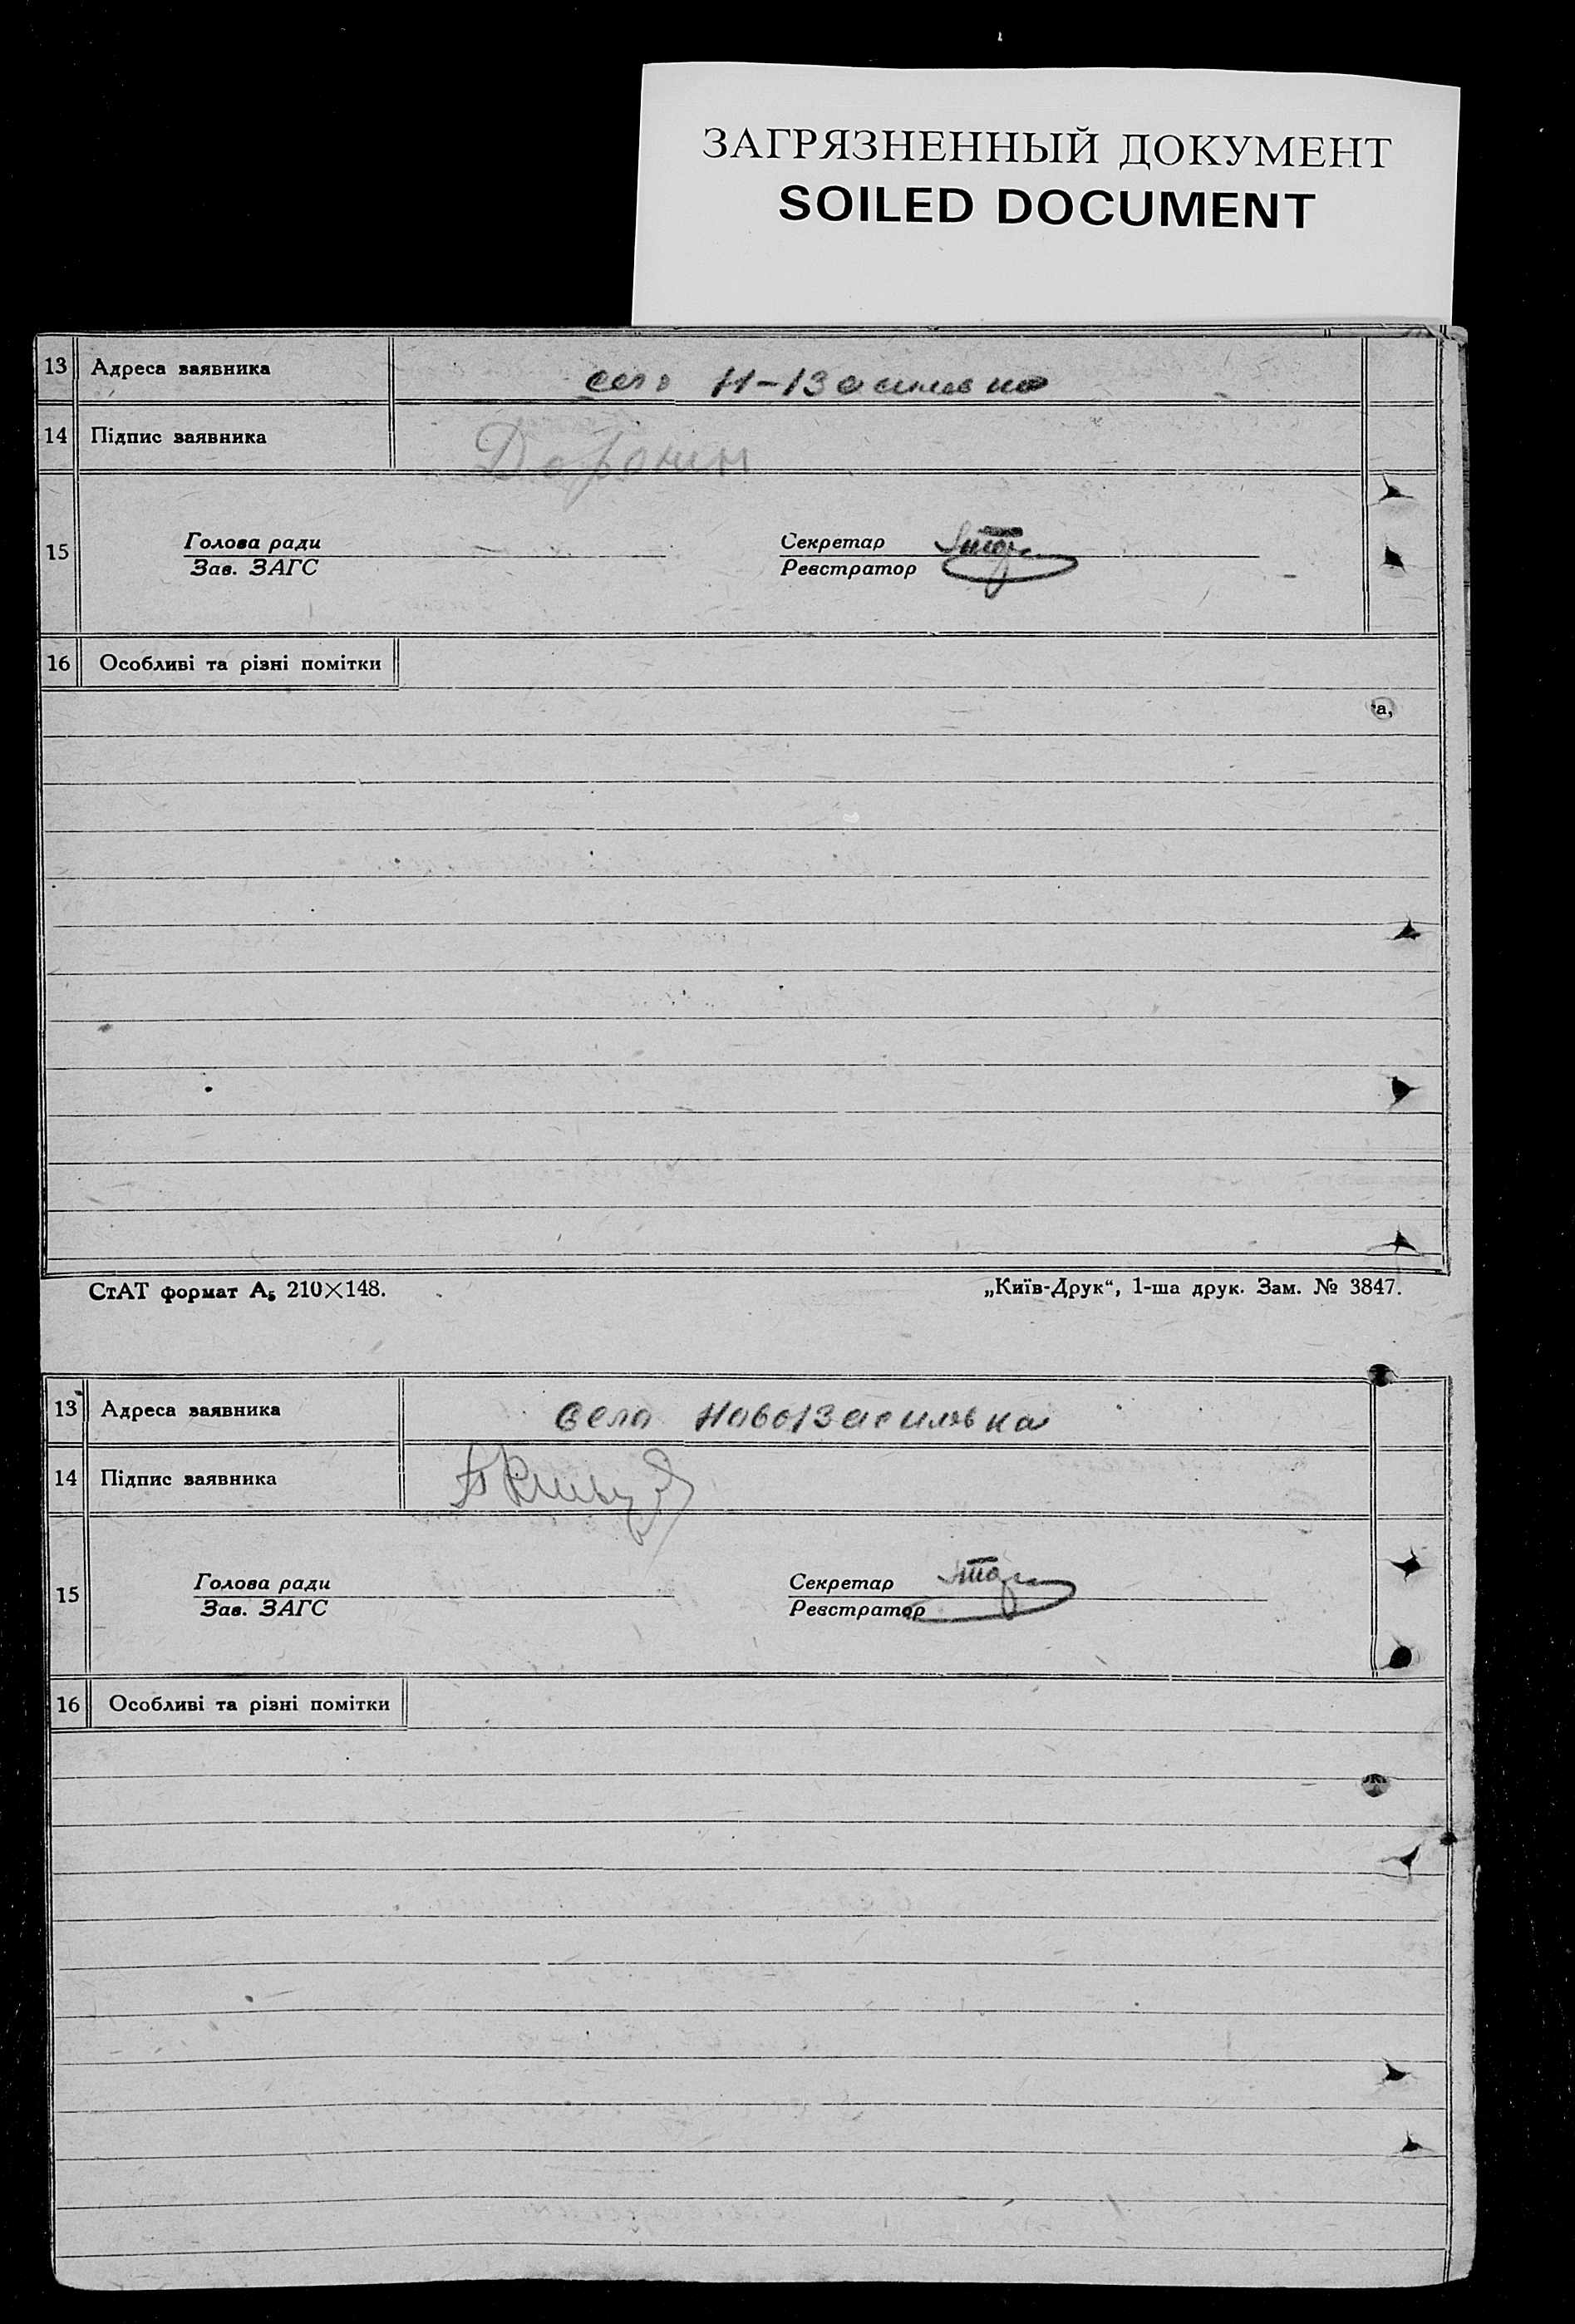 ЗАГРЯЗНЕННЫЙ ДОКУМЕНТ
SOILED DOCUMENT
13 Адреса заявника село Н-Василовка
14 Підпис заявника Доронин
15 Голова ради Секретар
Зав. ЗАГС Реєстратор
16 Особливі та різні помітки
а,
СтАТ формат А5 210×148. „Київ-Друк“, 1-ша друк. Зам. № 3847.
13 Адреса заявника село НовоВасиловка
14 Підпис заявника
15 Голова ради Секретар
Зав. ЗАГС Реєстратор
16 Особливі та різні помітки